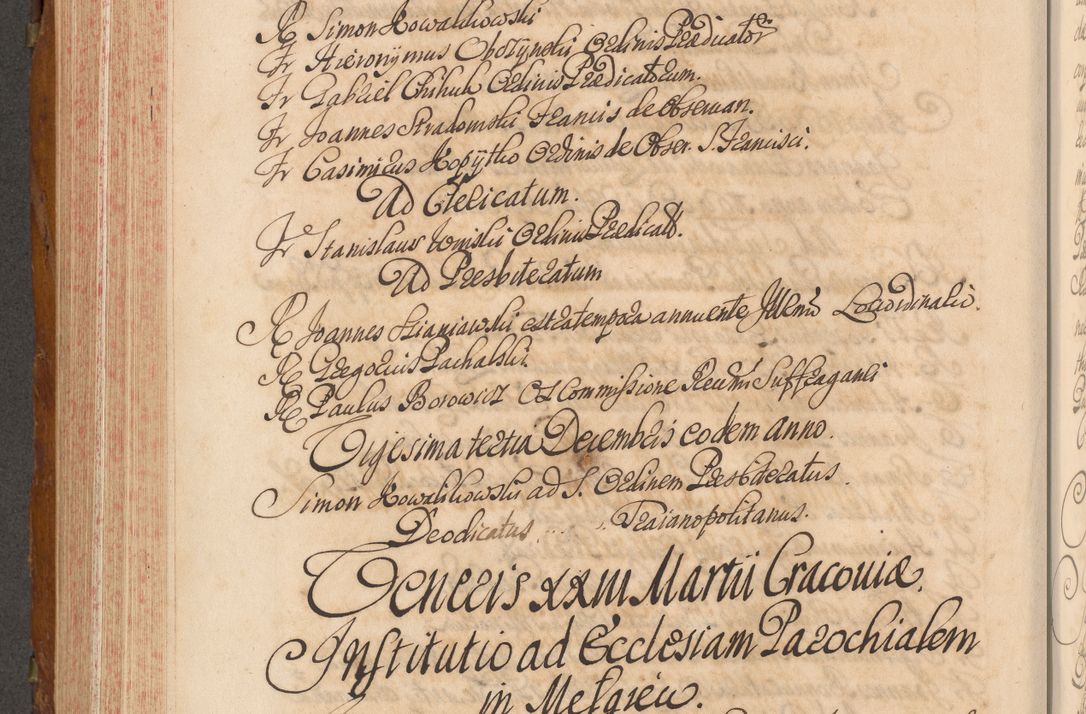 R Simon Kowalikowski
Fr Hieronÿmus Obozÿnski Ordinis Prædicator
Fr Gabriel Chihuh Ordinis Prædicatorum.
Fr Joannes Stradomski Francis de Obseruan.
Fr Casimirus Kopÿtko Ordinis de Obser. S. Francisci.
Ad Clericatum.
Fr Stanislaus Ordinis Prædicatt.
Ad Presbiteratum
R Joannes Szaniawski extratempora annuente Illmo Loci Ordinario.
R Gregorius Pachalski.
R Paulus Borowicz ex Commissione Rendmi Suffraganei
Vigesima tertia Decembris eodem anno.
Simon Kowalikowski ad S. Ordinem Presbiteratus.
Deodicatus ..... Traianopolitanus.
Veneris XXIII Martii Cracoviæ.
Institutio ad Ecclesiam Parochialem
in Melgieu.